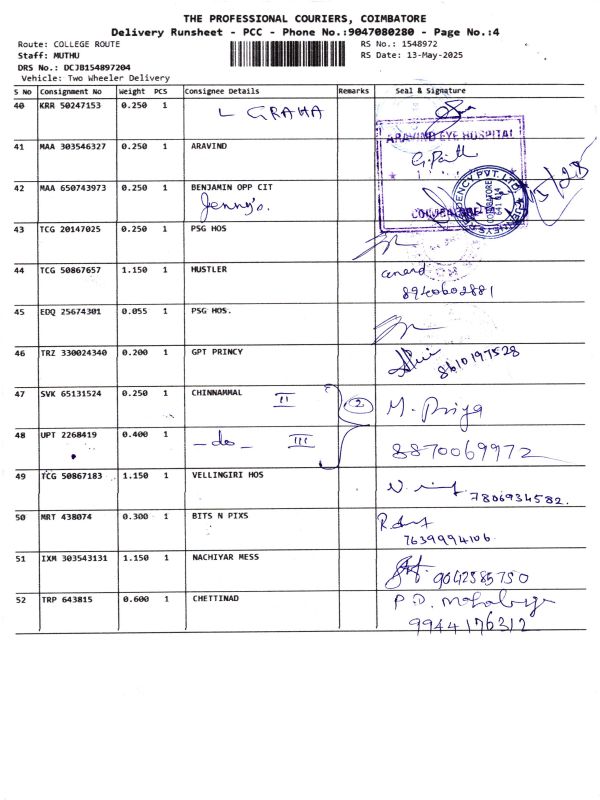 THE PROFESSIONAL COURIERS, COIMBATORE
Delivery Runsheet - PCC - Phone No.:9047080280 - Page No.:4
Route: COLLEGE ROUTE RS No.: 1548972
Staff: MUTHU RS Date: 13-May-2025
DRS No.: DCJB154897204
Vehicle: Two Wheeler Delivery
S No Consignment No Weight PCS Consignee Details Remarks Seal & Signature
40 KRR 50247153 0.250 1 L GRAHA
41 MAA 303546327 0.250 1 ARAVIND
ARAVIND EYE HOSPITAL
42 MAA 650743973 0.250 1 BENJAMIN OPP CIT
Jenny's.
43 TCG 20147025 0.250 1 PSG HOS
44 TCG 50867657 1.150 1 HUSTLER anand
8940602881
45 EDQ 25674301 0.055 1 PSG HOS.
46 TRZ 330024340 0.200 1 GPT PRINCY
8610197528
47 SVK 65131524 0.250 1 CHINNAMMAL II 2 M. Priya
48 UPT 2268419 0.400 1 - do - III 8870069972
49 TCG 50867183 1.150 1 VELLINGIRI HOS
7806934582.
50 MRT 438074 0.300 1 BITS N PIXS
7639994106
51 IXM 303543131 1.150 1 NACHIYAR MESS 9042585750
52 TRP 643815 0.600 1 CHETTINAD
9944176312